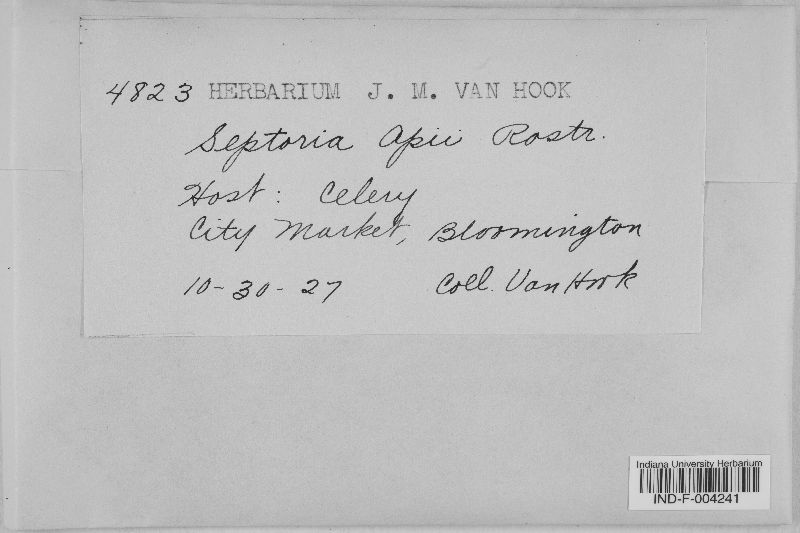 4823 HERBARIUM J. M. VAN HOOK
Septoria Apii Rostr.
Host: Celery
City Market, Bloomington
10-30-27 Coll. Van Hook
Indiana University Herbarium
IND-F-004241